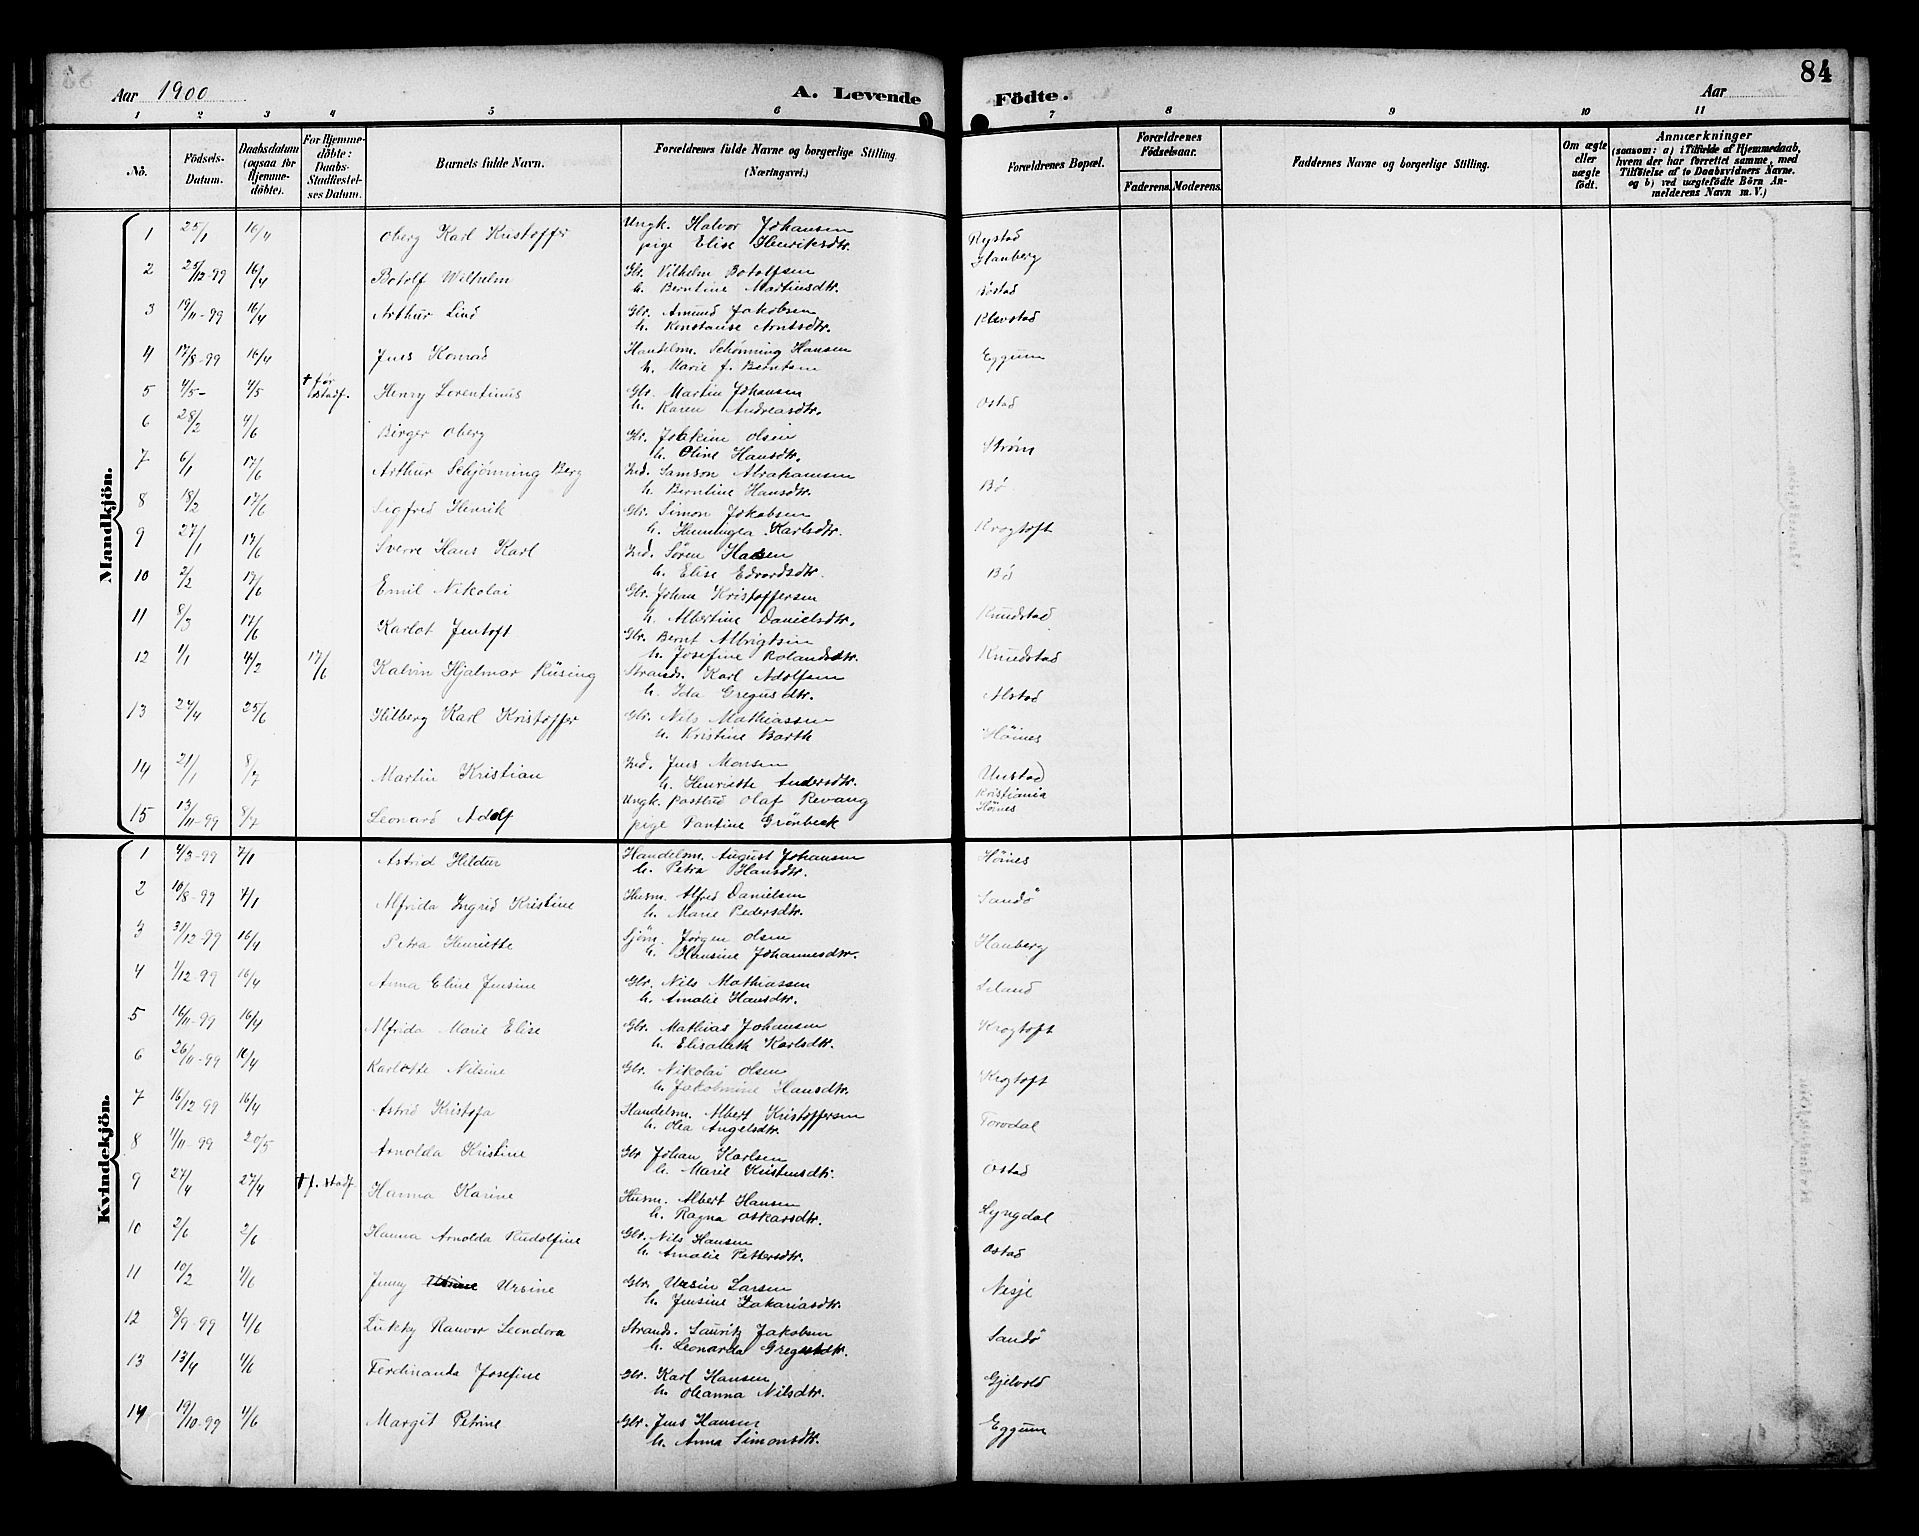 Aar 1900
A. Levende Födte.
Aar
84
1 2 3 4 5 6 7 8 9 10 11
No.
Födsels-Datum.
Daabsdatum (ogsaa for Hjemmedöbte).
For Hjemmedöbte: Daabs-Stadfæstelses Datum.
Barnets fulde Navn.
Forældrenes fulde Navne og borgerlige Stilling. (Næringsvei.)
Forældrenes Bopæl.
Forældrenes Födselsaar.
Faderens. Moderens.
Faddernes Navne og borgerlige Stilling.
Om ægte eller uægte födt.
Anmærkninger (saasom: a) i Tilfælde af Hjemmedaab, hvem der har forrettet samme, med Tilföielse af to Daabsvidners Navne. og b) ved uægtefödte Börn Anmelderens Navn m. V.)
Mandkjön.
1 25/1 16/4 Oberg Karl Kristoffer Ungk. Halvor Johansen Rystad
pige Elise Henriksdtr. Hauberg
2 25/12-99 16/4 Botolf Wilhelm Gbr. Vilhelm Botolfsen
h. Berntine Martinsdtr. Bøstad
3 19/11-99 16/4 Arthur Lind Gbr. Amund Jakobsen
h. Konstanse Arntsdtr. Klevstad
4 17/8-99 16/4 Jens Konrad Handelsm. Schønning Hansen Eggum
h. Marie f. Berntsen
5 4/5- 4/5 † før stadf. Henry Lorentinus Gbr. Martin Johansen Ostad
h. Karen Andreasdtr.
6 28/2 4/6 Birger Oberg Gbr. Joakim Olsen Strøm
h. Oline Hansdtr.
7 6/1 17/6 Arthur Schjønning Berg Ind. Samson Abrahamsen Bø
h. Berntine Hansdtr.
8 18/2 17/6 Sigfred Henrik Gbr. Simon Jakobsen Krogtoft
h. Henningea Karlsdtr.
9 27/1 17/6 Sverre Hans Karl Ind. Søren Hansen Bø
h. Elise Edvardsdtr.
10 2/2 17/6 Emil Nikolai Gbr. Johan Kristoffersen Knudstad
h. Albertine Danielsdtr.
11 8/3 17/6 Karlot Jentoft Gbr. Bernt Albrigtsen Knudstad
h. Josefine Rolandsdtr.
12 1/1 4/2 17/6 Kalvin Hjalmar Rüsing Strands. Karl Adolfsen Alstad
h. Ida Gregusdtr.
13 27/4 25/6 Hilberg Karl Kristoffer Gbr. Nils Mathiassen Høines
h. Kristine Barth
14 21/1 8/7 Martin Kristian Ind. Jens Monsen Unstad
h. Henriette Andersdtr.
15 13/11-99 8/7 Leonard Adolf Ungk. postbud Olaf Revang Kristiania
pige Pantine Grønbeck Høines
Kvindekjön.
1 4/3-99 7/1 Astrid Hildur Handelsm. August Johansen Høines
h. Petra Hansdtr.
2 10/8-99 4/1 Alfrida Ingrid Kristine Husm. Alfred Danielsen Sandö
h. Marie Pedersdtr.
3 31/12-99 16/4 Petra Henriette Sjöm. Jørgen Olsen Hauberg
h. Hansine Johannesdtr.
4 1/12-99 16/4 Anna Eline Jensine Gbr. Nils Mathiassen Leland
h. Amalie Hansdtr.
5 16/11-99 16/4 Alfrida Marie Elise Gbr. Mathias Johansen Krogtoft
h. Elisabeth Karlsdtr.
6 26/11-99 16/4 Karlotte Nilsine Gbr. Nikolai Olsen Krogtoft
h. Jakobine Hansdtr.
7 16/12 99 16/4 Astrid Kristofa Handelsm. Albert Kristoffersen Torvdal
h. Olea Angelsdtr.
8 1/11-99 20/5 Arnolda Kristine Gbr. Johan Karlsen Ostad
h. Marie Kristensdtr.
9 27/4 27/4 † f. stadf. Hanna Karine Husm. Albert Hansen Lyngdal
h. Ragna Oskarsdtr.
10 2/6 2/6 Hanna Arnolda Rudolfine Gbr. Nils Hansen Ostad
h. Amalie Pettersdtr.
11 10/2 4/6 Jenny Ursine Gbr. Ursin Larsen Nesje
h. Jensine Zakariasdtr.
12 8/9-99 4/6 Lükky Ranvor Leondora Strands. Lauritz Jakobsen Sandö
h. Leonarda Gregusdtr.
13 13/4 4/6 Ferdinanda Josefine Gbr. Karl Hansen Gjelvold
h. Oleanna Nilsdtr.
14 19/10-99 4/6 Margit Petrine Gbr. Jens Hansen Eggum
h. Anna Simonsdtr.